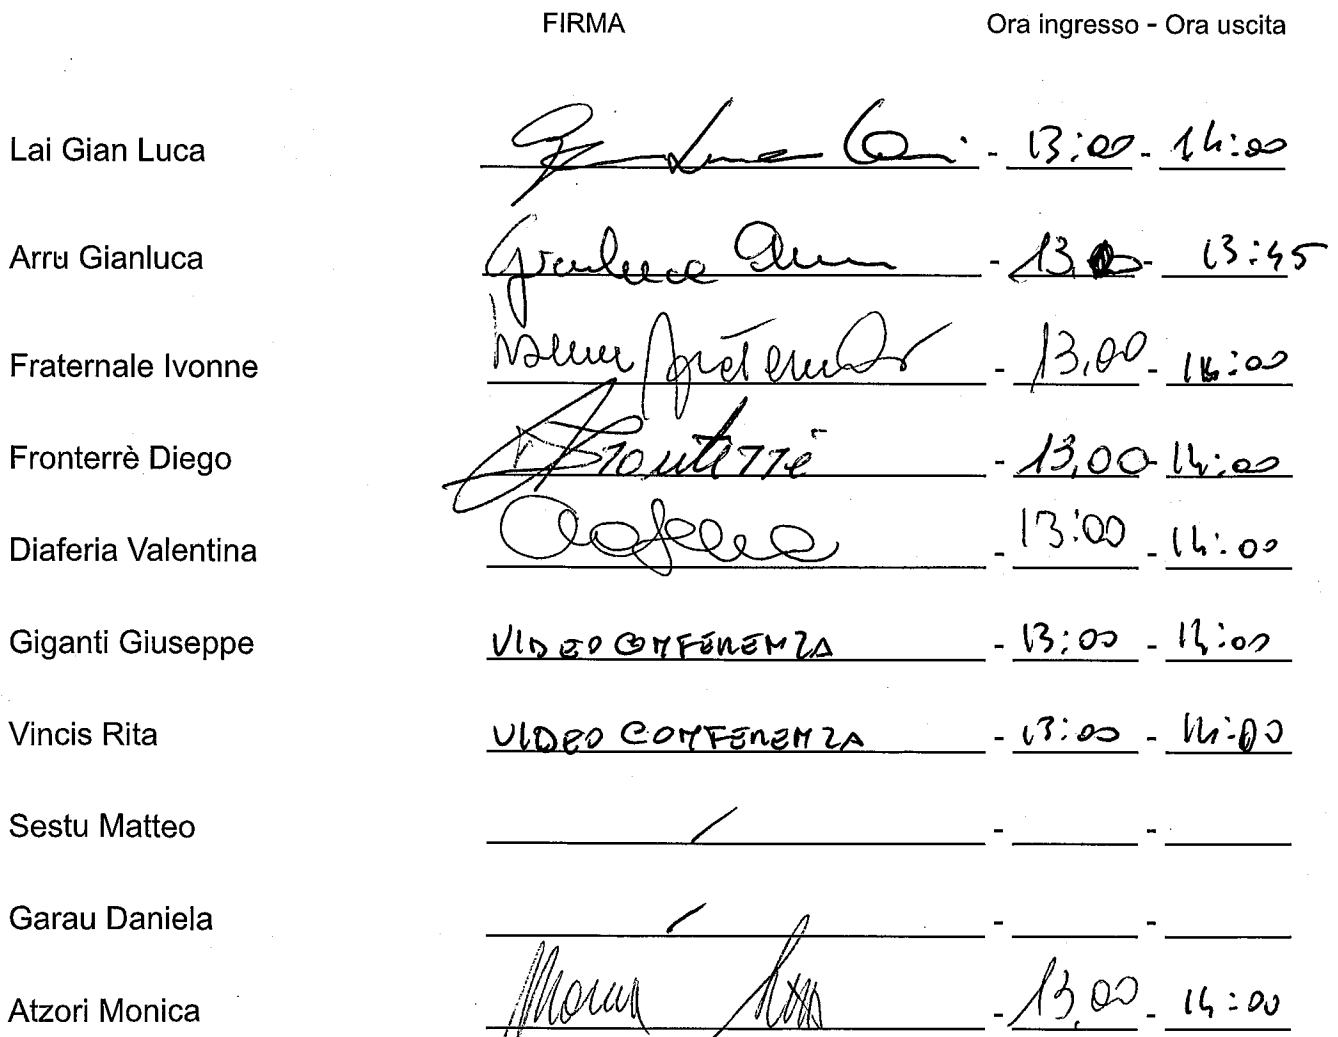 FIRMA Ora ingresso - Ora uscita
Lai Gian Luca Gian Luca Lai - 13:00 - 14:00
Arru Gianluca Gianluca Arru - 13 - 13:45
Fraternale Ivonne - 13,00 - 14:00
Fronterrè Diego Fronterrè - 13,00 - 14:00
Diaferia Valentina - 13:00 - 14:00
Giganti Giuseppe VIDEO CONFERENZA - 13:00 - 14:00
Vincis Rita VIDEO CONFERENZA - 13:00 - 14:00
Sestu Matteo / - -
Garau Daniela / - -
Atzori Monica - 13,00 - 14:00